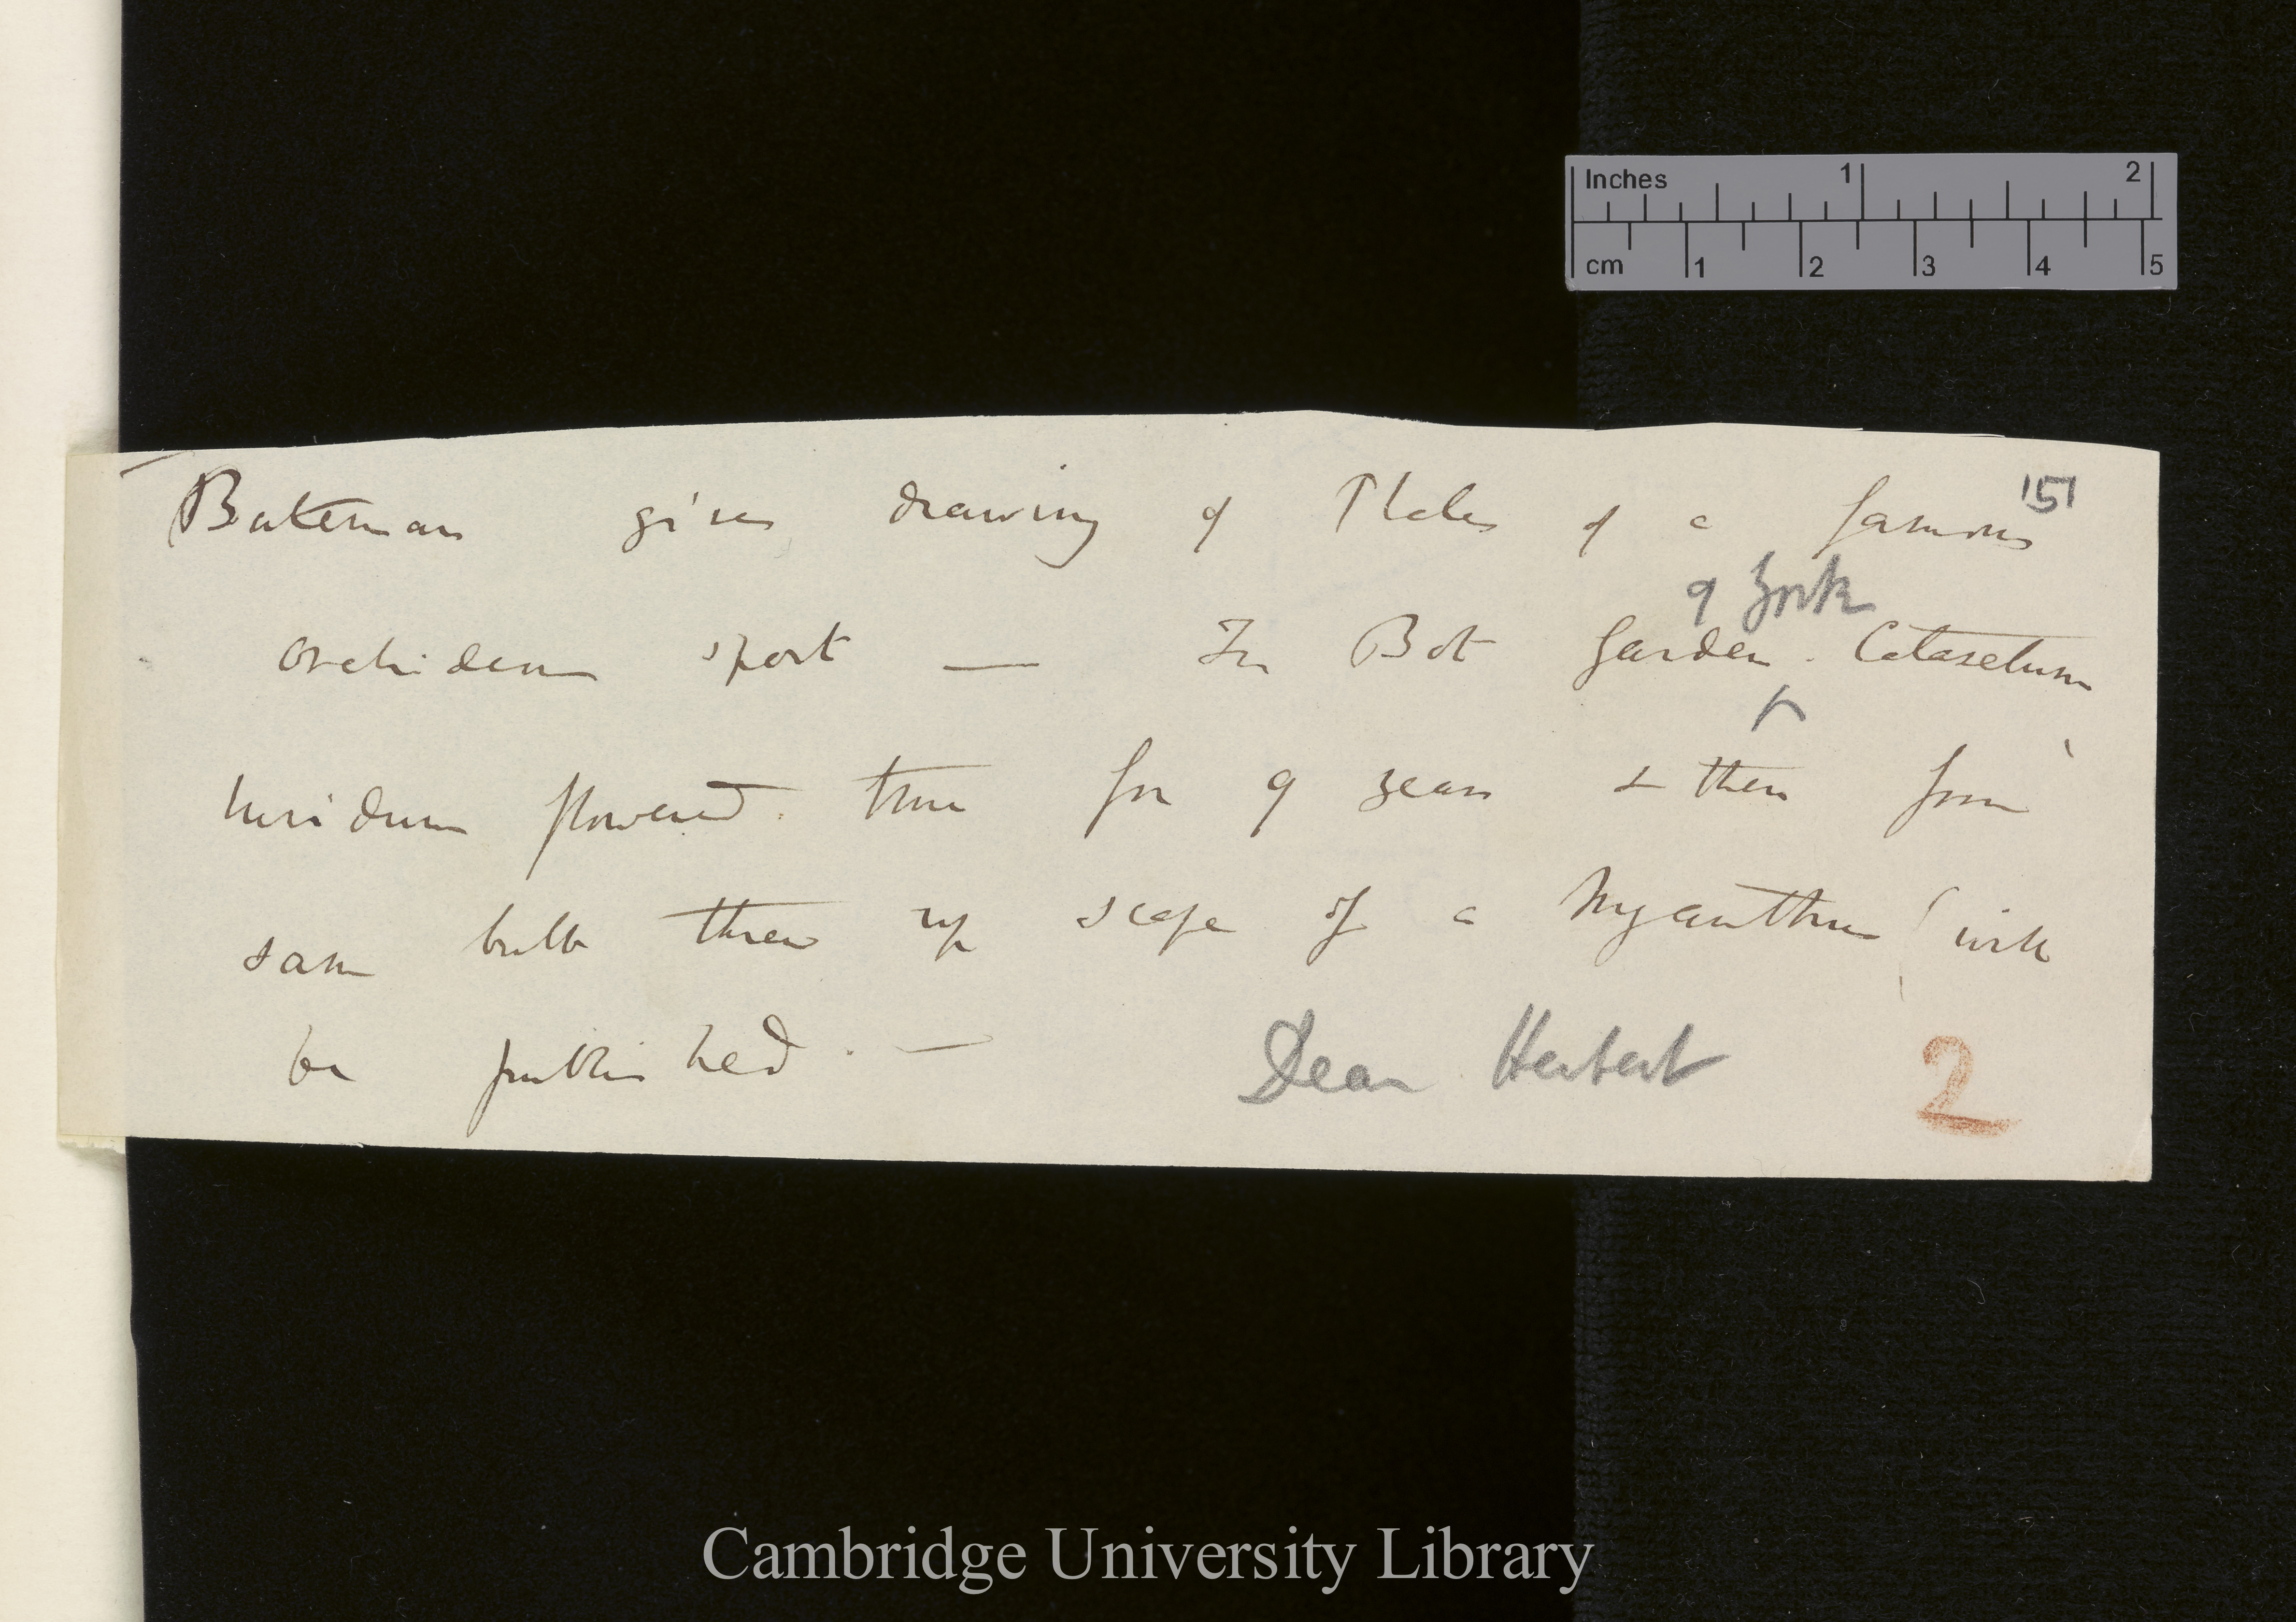 Inches 1 2
cm 1 2 3 4 5
151
Bateman gives drawing of Plates of a famous
of York
orchideous sport — In Bot Garden . Catasetum
luridum flowered true for 9 years & then from
same bulb threw up scape of a Myanthus (will
be published. —
Dean Herbert
2
Cambridge University Library